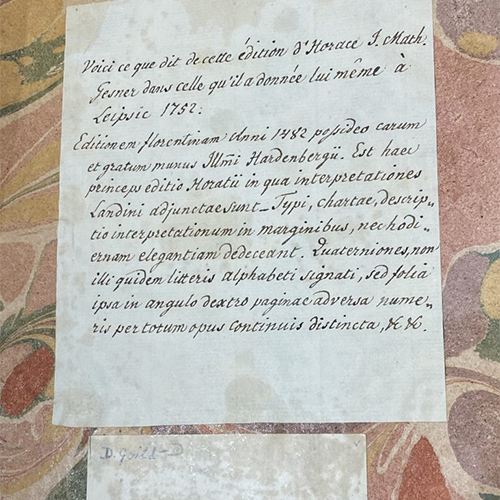 Voici ce que dit de cette édition d'Horace J. Math.
Gesner dans celle qu'il a donnée lui même à
Leipsic 1752:
Editionem florentinam Anni 1482 possideo carum
et gratum munus Illmi Hardenbergii. Est haec
princeps editio Horatii in qua interpretationes
Landini adjunctae sunt_ Typi, chartae, descrip„
tio interpretationum in marginibus, nec hodi„
ernam elegantiam dedeceant. Quaterniones, non
illi quidem litteris alphabeti signati, sed folia
ipsa in angulo dextro paginae adversa nume„
ris per totum opus continuis distincta, &c &c.